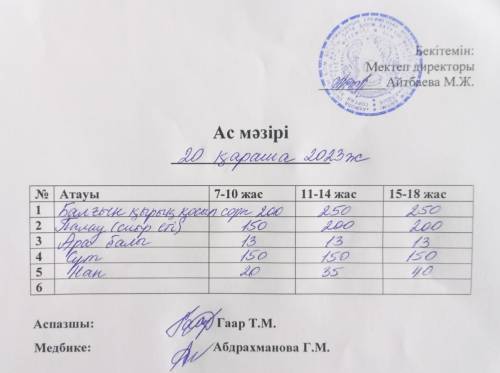 Бекітемін:
Мектеп директоры
Айтбаева М.Ж.
Ас мәзірі
20 қараша 2023ж
№ Атауы 7-10 жас 11-14 жас 15-18 жас
1 Балғын қырыққабат сорп 200 250 250
2 Палау (сиыр еті) 150 200 200
3 Ара балы 13 13 13
4 Сүт 150 150 150
5 Нан 20 35 40
6
Аспазшы: Гаар Т.М.
Медбике: Абдрахманова Г.М.